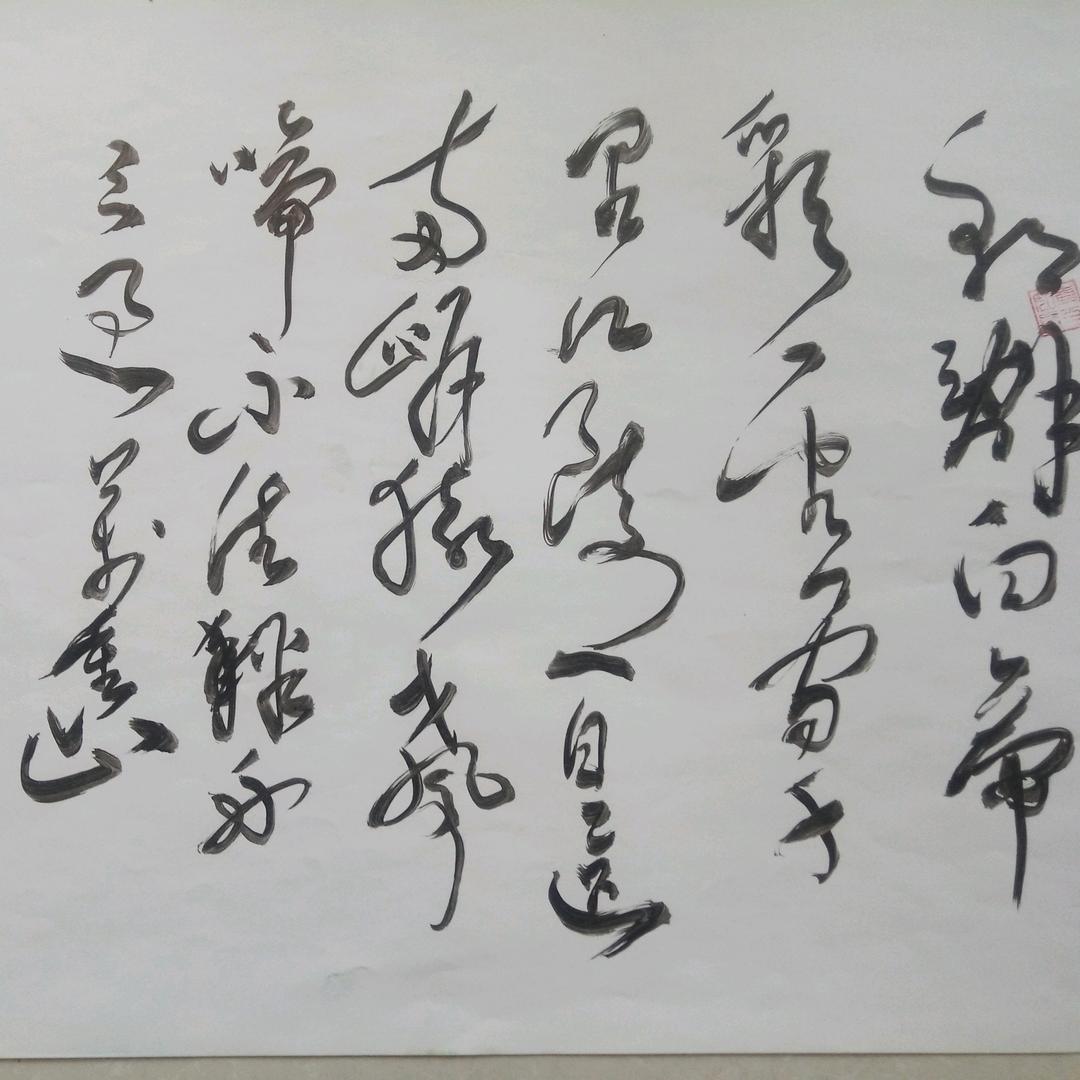 朝辭白帝
彩雲間千
里江陵一日還
兩岸猿聲
啼不住輕舟
已過萬重山